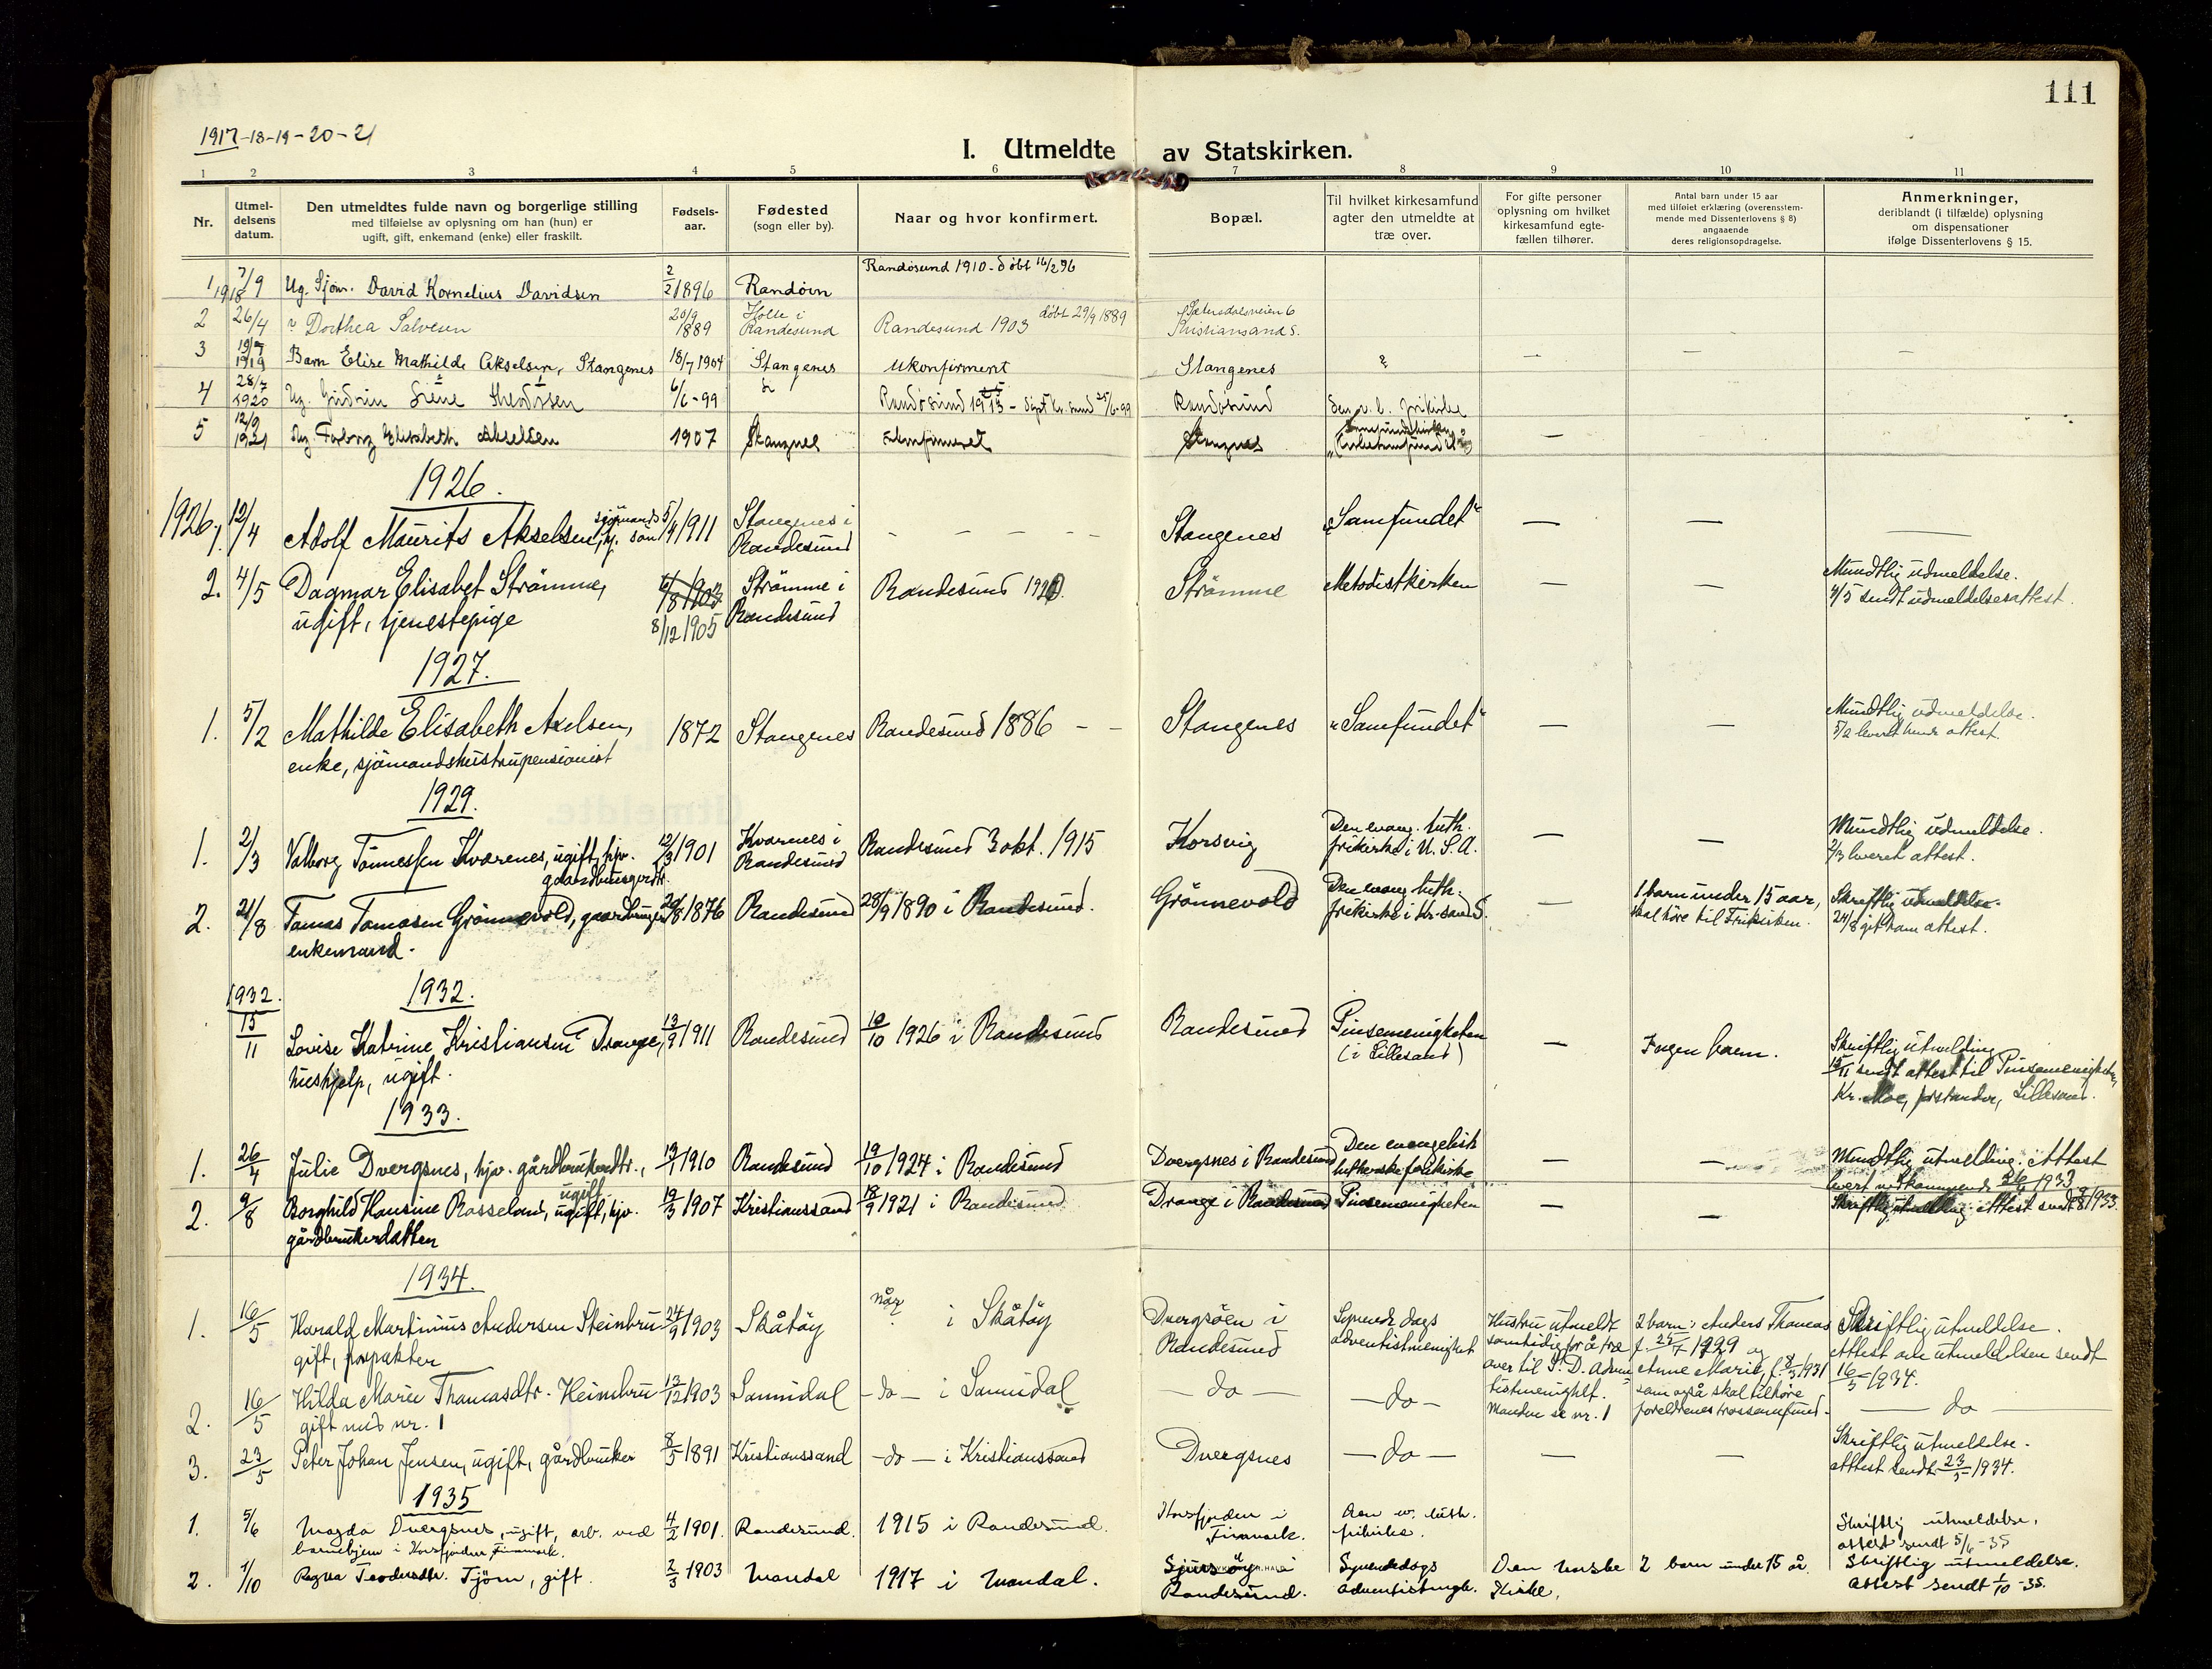 111
1917-18-19-20-21
I. Utmeldte av Statskirken.
1 2 3 4 5 6 7 8 9 10 11
Nr.
Utmel-
delsens
datum.
Den utmeldtes fulde navn og borgerlige stilling
med tilføielse av oplysning om han (hun) er
ugift, gift, enkemand (enke) eller fraskilt.
Fødsels-
aar.
Fødested
(sogn eller by).
Naar og hvor konfirmert.
Bopæl.
Til hvilket kirkesamfund
agter den utmeldte at
træ over.
For gifte personer
oplysning om hvilket
kirkesamfund egte-
fællen tilhører.
Antal barn under 15 aar
med tilføiet erklæring (overensstem-
mende med Dissenterlovens § 8)
angaaende
deres religionsopdragelse.
Anmerkninger,
deriblandt (i tilfælde) oplysning
om dispensationer
ifølge Dissenterlovens § 15.
1 7/9 Ug. Sjøm. David Kornelius Davidsen 2/2 1896 Randøen Randøsund 1910 - døbt 16/2 96
1918
2 26/4 Dorthea Salvesen 20/9 1889 Holte i Randesund Randesund 1903 døbt 29/9 1889 Sætersdalsveien 6 Kristiansand S.
3 1919 Barn Elise Mathilde Akselsen, Stangenes 18/7 1904 Stangenes ukonfirmert Stangenes ? — — —
4 28/7 1920 Ug. 6/6-99 Randøsund Randøsund frikirke
5 12/9 1921 Ug. Elisabeth Akselsen 1907 Stangnes Stangnes —
1926.
1926, 1. 12/4 Adolf Maurits Akselsen, sjømands søn 5/4 1911 Stangenes i Randesund - - - - - Stangenes "Samfundet" — — —
2. 4/5 Dagmar Elisabet Strømme, Strømme i Randesund 1920. Strømme Metodistkirken — — Mundtlig udmeldelse.
ugift, tjenestepige 8/12 1905 Randesund 4/5 sendt udmeldelsesattest.
1927.
1. 5/2 Mathilde Elisabeth Axelsen, 1872 Stangenes Randesund 1886 - - Stangenes "Samfundet" — — Mundtlig udmeldelse.
enke, sjømandshustrupensionist 5/2 leveret hende attest.
1929.
1. 2/3 Valborg Tønnessen Kvarenes, ugift, hjv. 1901 Kvarnes i Randesund Randesund 3 okt. 1915 Korsvig Den evang. luth. frikirke i U.S.A. — — Mundtlig udmeldelse.
2/3 leveret attest.
2. 21/8 Tomas Tomasen Grønnevold, gaardbruger 1876 Randesund 28/9 1890 i Randesund. Grønnevold Den evang. luth. frikirke i Kr-sand S. — 1 barn under 15 aar, skal høre til Frikirken. Skriftlig udmeldelse.
enkemand. 24/8 git ham attest.
1932. 1932.
15/11 Lovise Katrine Kristiansen Drange, 13/9 1911 Randesund 10/10 1926 i Randesund Randesund Pinsemenigheten (i Lillesand) — Ingen barn. Skriftlig utmelding
hushjelp, ugift. 15/11 sendt attest til Pinsemenigheten,
Kr. Moe, forstander, Lillesand.
1933.
1. 26/4 Julie Dvergsnes, hjv. gårdbrukerdtr., 1910 Randesund 19/10 1924 i Randesund Dvergsnes i Randesund Den evangelisk lutherske frikirke — — Mundtlig utmelding. Attest
levert vedkommende 26/4 1933
2. 9/8 Borghild Hansine Rosseland, ugift, hjv. 19/3 1907 Kristianssand 18/9 1921 i Randesund Drange i Randesund Pinsemenigheten — — Skriftlig utmelding. Attest sendt 9/8 1933.
gårdbrukerdatter
1934.
1. 16/5 Harald Martinius Andersen 24/9 1903 Skåtøy når? i Skåtøy Dvergsøen i Randesund Syvende dags adventistmenighet
gift, forpakter
Hustru utmeldt samtidig for å træ over til S. D. Adventistmenight. Manden se nr. 1
2 barn: Anders Thomas f. 1929 og Anne Marie, f. 1931 som også skal tilhøre foreldrenes trossamfund.
Skriftlig utmeldelse.
Attest om utmeldelsen sendt
16/5 1934.
2. 16/5 Hilda Marie Thomasdtr. 13/12 1903 Sannidal - do - i Sannidal — do — — do — — do —
gift med nr. 1
3. 23/5 Peter Johan Jensen, ugift, gårdbruker 8/5 1891 Kristianssand - do - i Kristianssand Dvergsnes — do — — — Skriftlig utmeldelse.
attest sendt 23/5 1934.
1935
1. 5/6 Magda Dvergsnes, ugift, arb. ved 4/2 1901. Randesund. 1915 i Randesund. Korsfjorden i Finmark. Den ev. luth. frikirke. Skriftlig utmeldelse,
barnehjem i Korsfjorden, Finmark. attest sendt 5/6-35
2. 1/10 Ragna Teodersdtr. Tjöm, gift. 2/3 1903 Mandal 1917 i Mandal. Randesund. Syvendedags adventistmgh. Den norske Kirke, 2 barn under 15 år. Skriftlig utmeldelse.
Attest sendt 1/10-35.